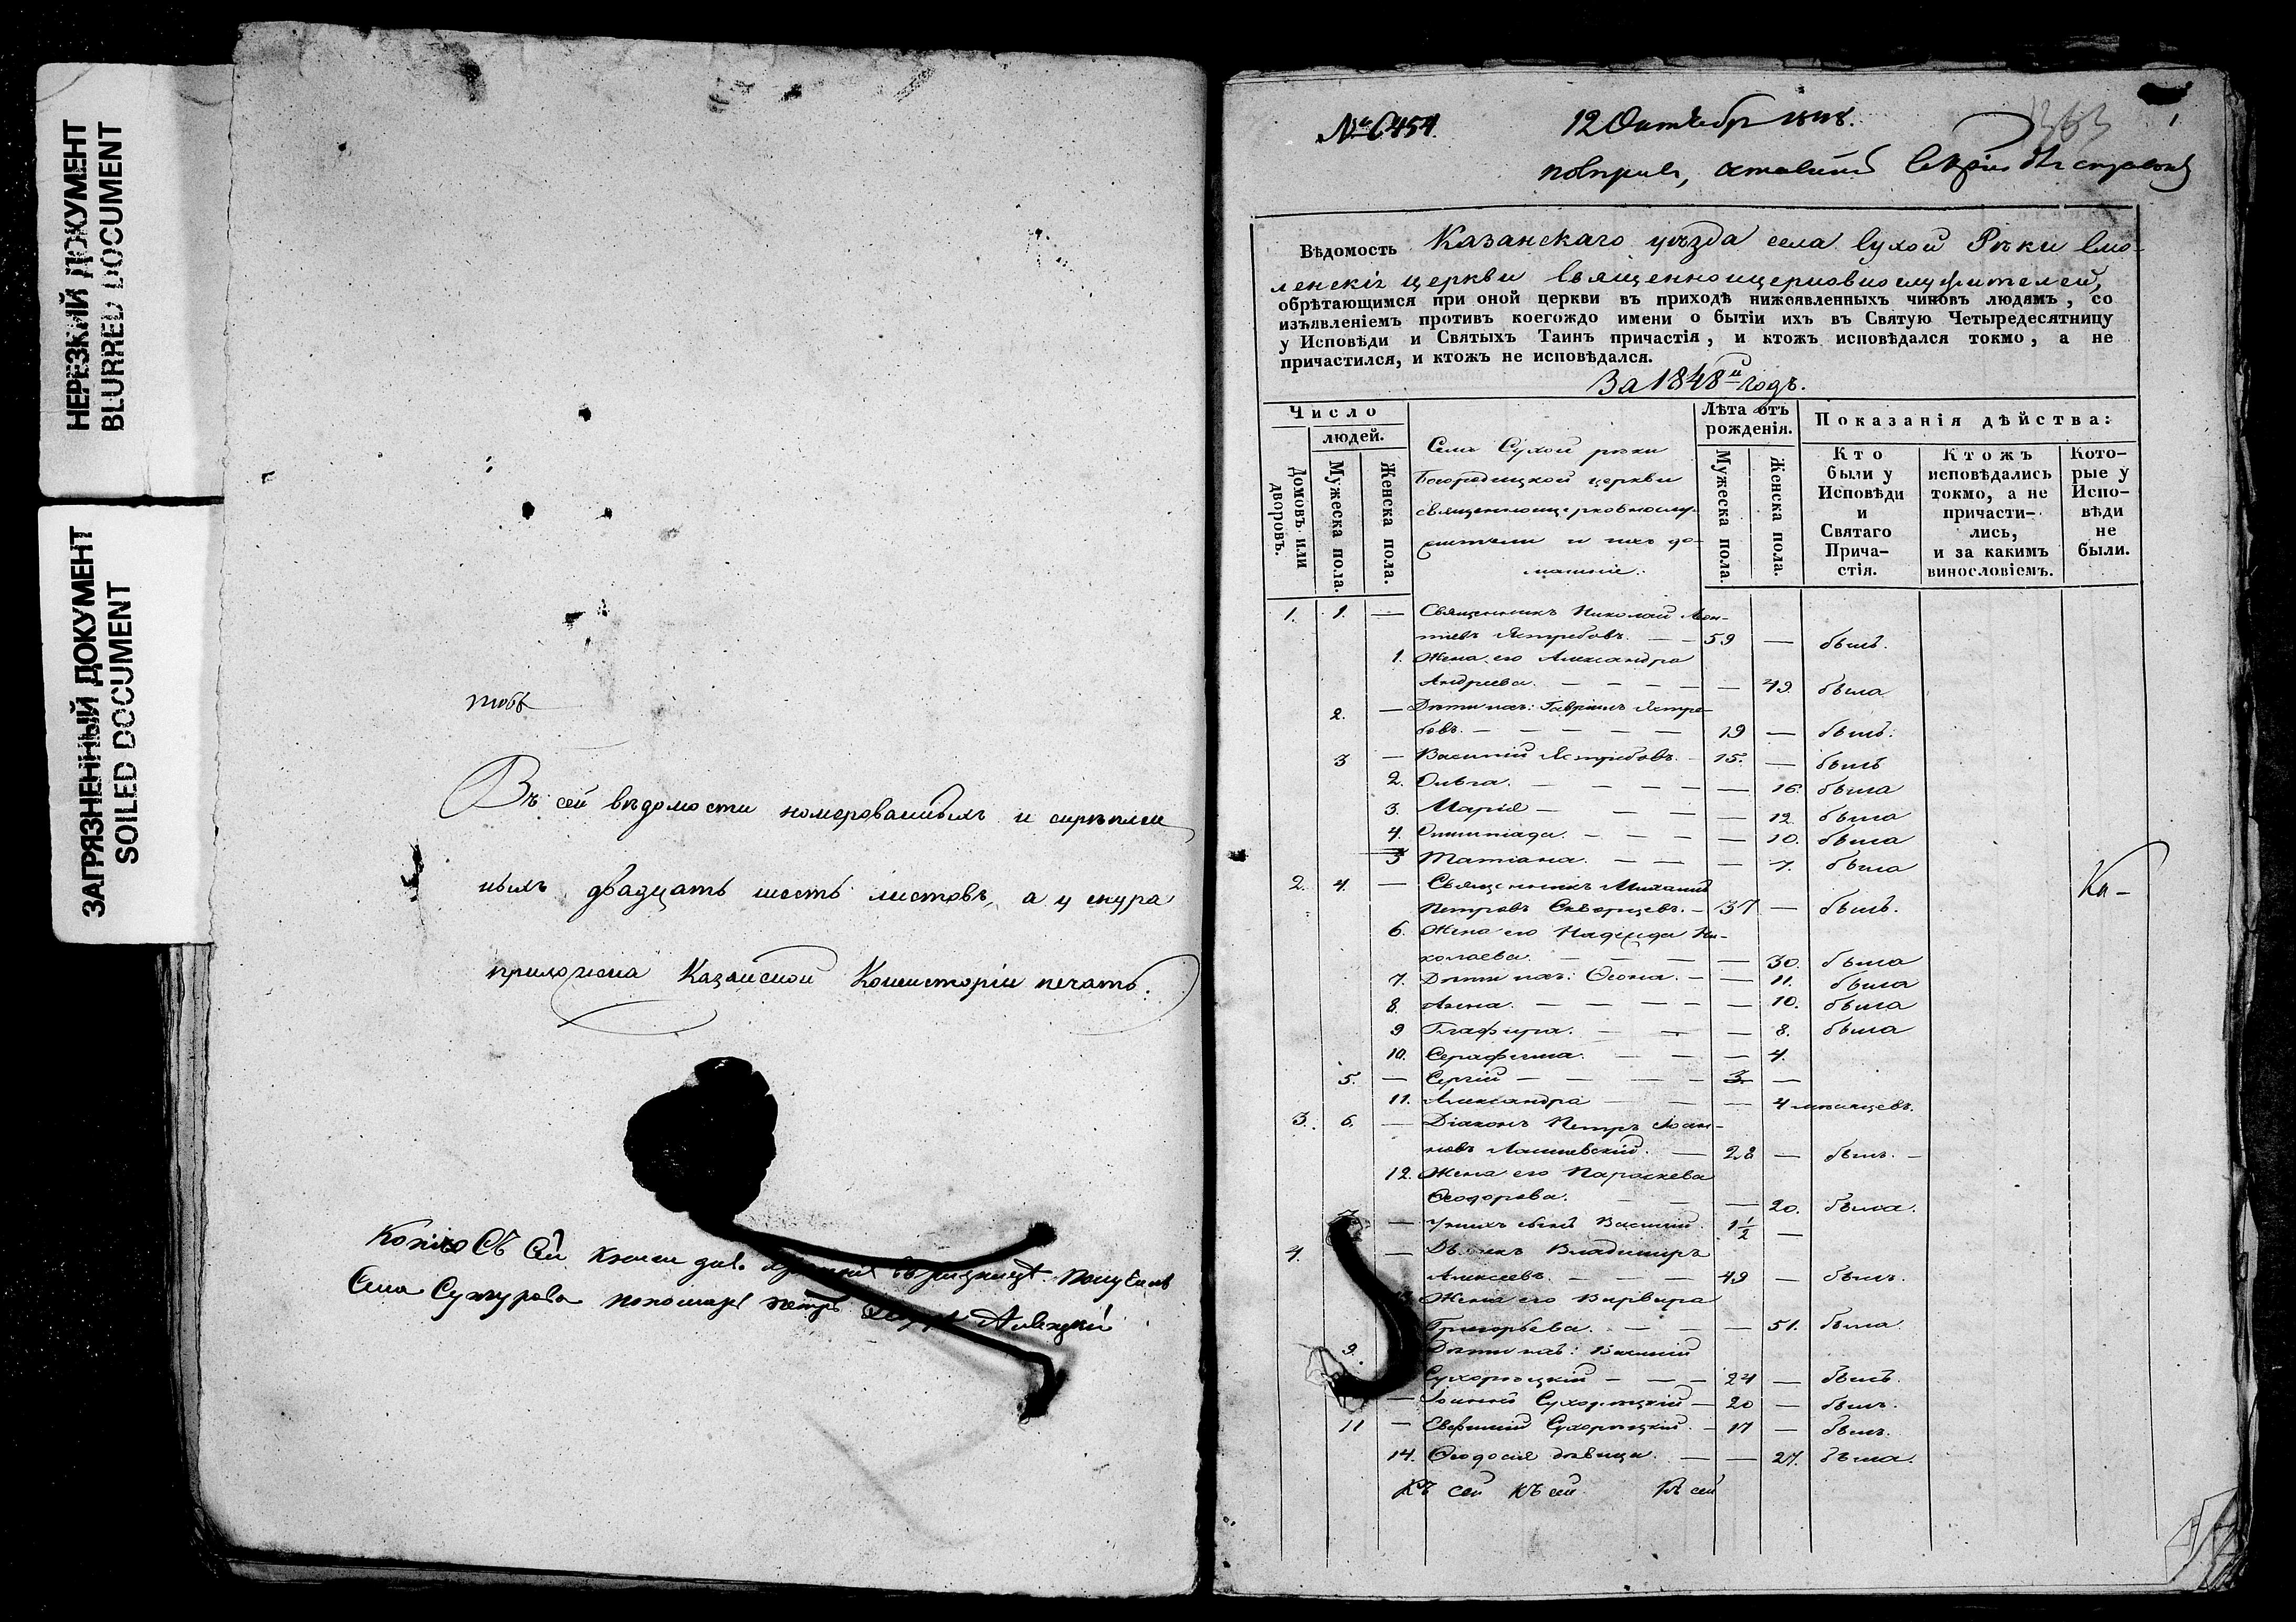 НЕРЕЗКИЙ ДОКУМЕНТ
BLURRED DOCUMENT
ЗАГРЯЗНЕННЫЙ ДОКУМЕНТ
SOILED DOCUMENT
Въ сей вѣдомости номерованныхъ и скрѣплен
ныхъ двадцать шесть листовъ, а у шнура
приложена Казанской Консисторіи печать.
Копію Съ Сей книги для
Села пономарь Петръ
12 Октября 1848.
363
1
Вѣдомость Казанскаго уѣзда села Сухой Рѣки Смо-
ленскія церкви Священноицерковнослужителей,
обрѣтающимся при оной церкви въ приходѣ нижеявленныхъ чиновъ людямъ, со
изъявленіемъ противъ коегождо имени о бытіи ихъ въ Святую Четыредесятницу
у Исповѣди и Святыхъ Таинъ причастія, и ктожъ исповѣдался токмо, а не
причастился, и ктожъ не исповѣдался.
За 1848й годъ.
Число
людей.
Домовъ или дворовъ.
Мужеска пола.
Женска пола.
Села Сухой рѣки
Богородицкой церкви
священноицерковнослу-
жители и ихъ до-
машніе:
Лѣта отъ
рожденія.
Мужеска пола.
Женска пола.
Показанія дѣйства:
Кто
были у
Исповѣди
и
Святаго
Прича-
стія.
Ктожъ
исповѣдались
токмо, а не
причасти-
лись,
и за какимъ
винословіемъ.
Кото-
рые у
Испо-
вѣди
не
были.
1. 1. — Священникъ Николай Леон-
тіевъ Ястребовъ. — — 59 — былъ.
1. Жена его Александра
Андреева. — — — — — 49. была
2. — Дѣти ихъ: Гавріилъ Ястре-
бовъ. — — — — — 19 — былъ.
3 — Василій Ястребовъ. — 15. — былъ
2. Ольга. — — — — — 16. была
3. Марія — — — — 12. была
4. Олимпіада. — — — — 10. была
5 Татіана. — — — 7. была
2. 4. — Священникъ Михаилъ
Петровъ Скворцевъ. — 37 — былъ.
Ка-
6. Жена его Надежда Ни-
колаева. — — — — 30. была
7. Дѣти ихъ: — — 11. была
8. Анна. — — — — — 10. была
9 Глафира. — — — 8. была
10. Серафима. — — — 4.
5. — Сергій — — — — 3. —
11. Александра — — — 4 мѣсяцевъ.
3. 6. — Діаконъ Петръ Іоан-
новъ — 28 — былъ. —
12. Жена его Параскева
Ѳеодорова. — — — 20. была.
— У нихъ сынъ Василій. 1½ —
4. — Дьячекъ Владимиръ
Алексеевъ. — — — 49 — былъ.
Жена его Варвара
Григорьева. — — — 51. была.
9. Дѣти ихъ: Василій
Сухорѣцкій — — — 24 — былъ.
— Іоаннъ Сухорѣцкій — 20 — былъ.
11 — Сухорѣцкій. — 17 — былъ.
14. Ѳеодосія дѣвица. — — 27. была.
Къ сей къ сей Къ сей